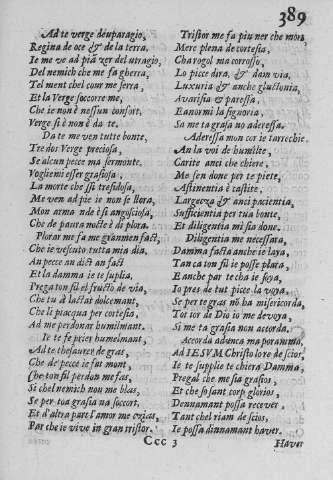 389
Ad te verge deuparagio,
Regina de oce & de la terra,
Ie me ve ad piã ver del utragio,
Del nemich che me fa gherra,
Tel ment chel cour me serra,
Et la Verge soccorre me,
Che ie non è nessun confort.
Verge si è non è da te.
Da te me ven tutte bonte,
Tredos Verge preciosa,
Se alcun pecce ma sermonte.
Vogliemi esser grasiosa,
La morte che ssi tresidosa,
Me ven ad pie ie non se llora,
Mon arma nde è si angosciosa,
Che de paura notte è di plora.
Plorar me fa me grũnmen fact,
Che ie vescuto tutta mia dia,
An pecce an dict an fact
Et la damma ie te suplia.
Prega ton fil el fructo de via,
Che tu à lactat dolcemant,
Che li piacqua per cortesia,
Ad me perdonar humilmant.
Ie te fe prier humelmant,
Ad te thesaurer de gras,
Che de pecce ie fu mont,
She ton fil perdan me fas,
Si chel nemich non me blas,
Se per toa grasia na soccort.
Et d'altra part l'amor me
Par che ie vive in gran tristor.
Tristor me fa piu ner che mora
Mere plena de cortesia,
Charogol ma corrosso,
Lo picce dira, & dam via,
Luxuria & anche gluctonia,
Avarisia & paressa,
E anormi la signoria,
Sa me ta grasia no aderessa.
Aderessa mon cor ie tarrechie.
An la voi de humilte,
Carite anci che chiere,
Me sen done per te piete,
Astinentia è castite,
Largezza & anci pacientia,
Sufficientia per tua bonte,
Et diligentia mi sia done.
Diligentia me necessara,
Damma facta anche ie laya,
Tan ca ton fil ie posse plara,
E anche par techa ie soya,
Io pres de tut picte la voya,
Se per te gras nõ ha misericorda,
Tot ior de Dio io me devoya,
Si me ta grasia non accorda.
Accorda adonca ma poranımo,
Ad IESVM Christo lore de scior,
Ie te supplie te chiera Damma,
Pregal che me sia grasios,
Et che so sant corp glorios,
Dennamant possa recever
Tant chel riam de scior,
Ie possa dinnamant haver.
Ccc 3
Haver